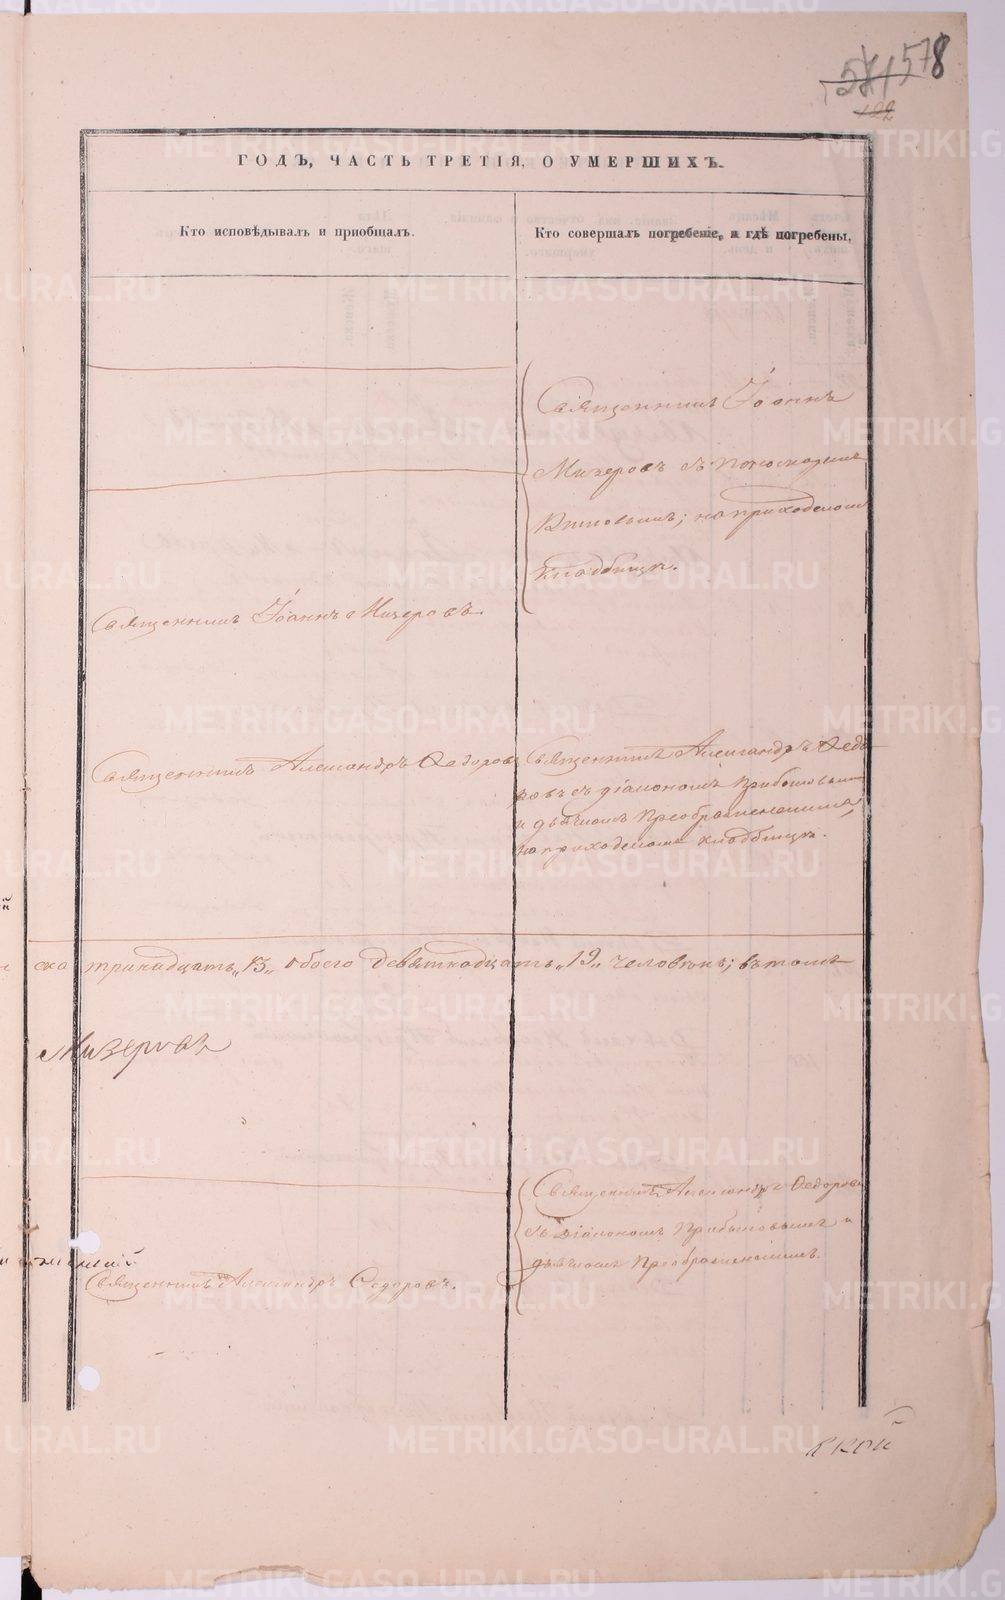 571 578
122
ГОДЪ, ЧАСТЬ ТРЕТІЯ, О УМЕРШИХЪ.
Кто исповѣдывалъ и пріобщалъ.
Кто совершалъ погребеніе, и гдѣ погребены.
Священникъ Іоаннъ
Мизеровъ съ
на приходскомъ
кладбищѣ.
Священникъ Іоаннъ Мизеровъ.
Священникъ Александръ Ѳедоровъ
Священникъ Александръ Ѳедо
ровъ съ діакономъ Прибытковымъ
и дьячкомъ Преображенскимъ,
на приходскомъ кладбищѣ.
ска тринадцать „13„ обоего девятнадцать „19„ человѣкъ; въ томъ
Мизеровъ
Священникъ Александръ Ѳедоровъ
съ Діакономъ Прибытковымъ и
дьячкомъ Преображенскимъ.
Священникъ Александръ Ѳедоровъ.
METRIKI.GASO-URAL.RU